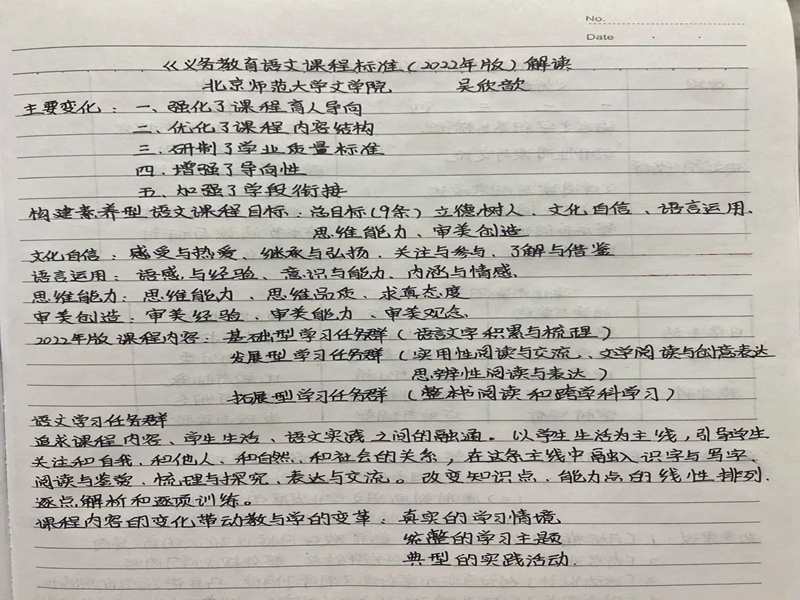 No.
Date
《义务教育语文课程标准(2022年版)解读
北京师范大学文学院 吴欣歆
主要变化:一、强化了课程育人导向
二、优化了课程内容结构
三、研制了学业质量标准
四、增强了导向性
五、加强了学段衔接
构建素养型语文课程目标:总目标(9条)立德树人、文化自信、语言运用、
思维能力、审美创造
文化自信:感受与热爱、继承与弘扬、关注与参与、了解与借鉴
语言运用:语感与经验、意识与能力、内涵与情感、
思维能力:思维能力、思维品质、求真态度
审美创造:审美经验、审美能力、审美观念、
2022年版课程内容:基础型学习任务群(语言文字积累与梳理)
发展型学习任务群(实用性阅读与交流、文学阅读与创意表达
思辨性阅读与表达)
拓展型学习任务群(整本书阅读和跨学科学习)
语文学习任务群
追求课程内容、学生生活、语文实践之间的融通。以学生生活为主线,引导学生
关注和自我、和他人、和自然、和社会的关系,在这条主线中融入识字与写字、
阅读与鉴赏、梳理与探究、表达与交流。改变知识点、能力点的线性排列、
逐点解析和逐项训练。
课程内容的变化带动教与学的变革:真实的学习情境、
完整的学习主题
典型的实践活动.